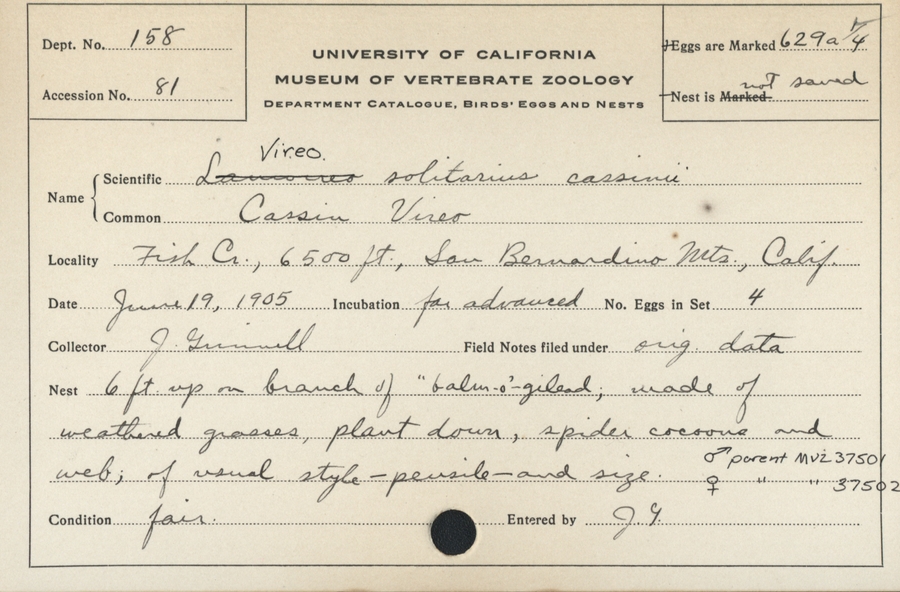 Dept. No. 158
Accession No. 81
UNIVERSITY OF CALIFORNIA
MUSEUM OF VERTEBRATE ZOOLOGY
DEPARTMENT CATALOGUE, BIRDS' EGGS AND NESTS
Eggs are Marked 629a 1/4
not saved
Nest is Marked
Vireo.
Name
Scientific Lanivireo solitarius cassinii
Common Cassin Vireo
Locality Fish Cr., 6500 ft., San Bernardino Mts., Calif.
Date June 19, 1905 Incubation far advanced No. Eggs in Set 4
Collector J. Grinnell Field Notes filed under orig. data
Nest 6 ft. up on branch of "balm-o'-gilead; made of
weathered grasses, plant down, spider cocoons and
web; of usual style-pensile-and size.
♂ parent MVZ 37501
♀ " " 37502
Condition fair. Entered by J. G.